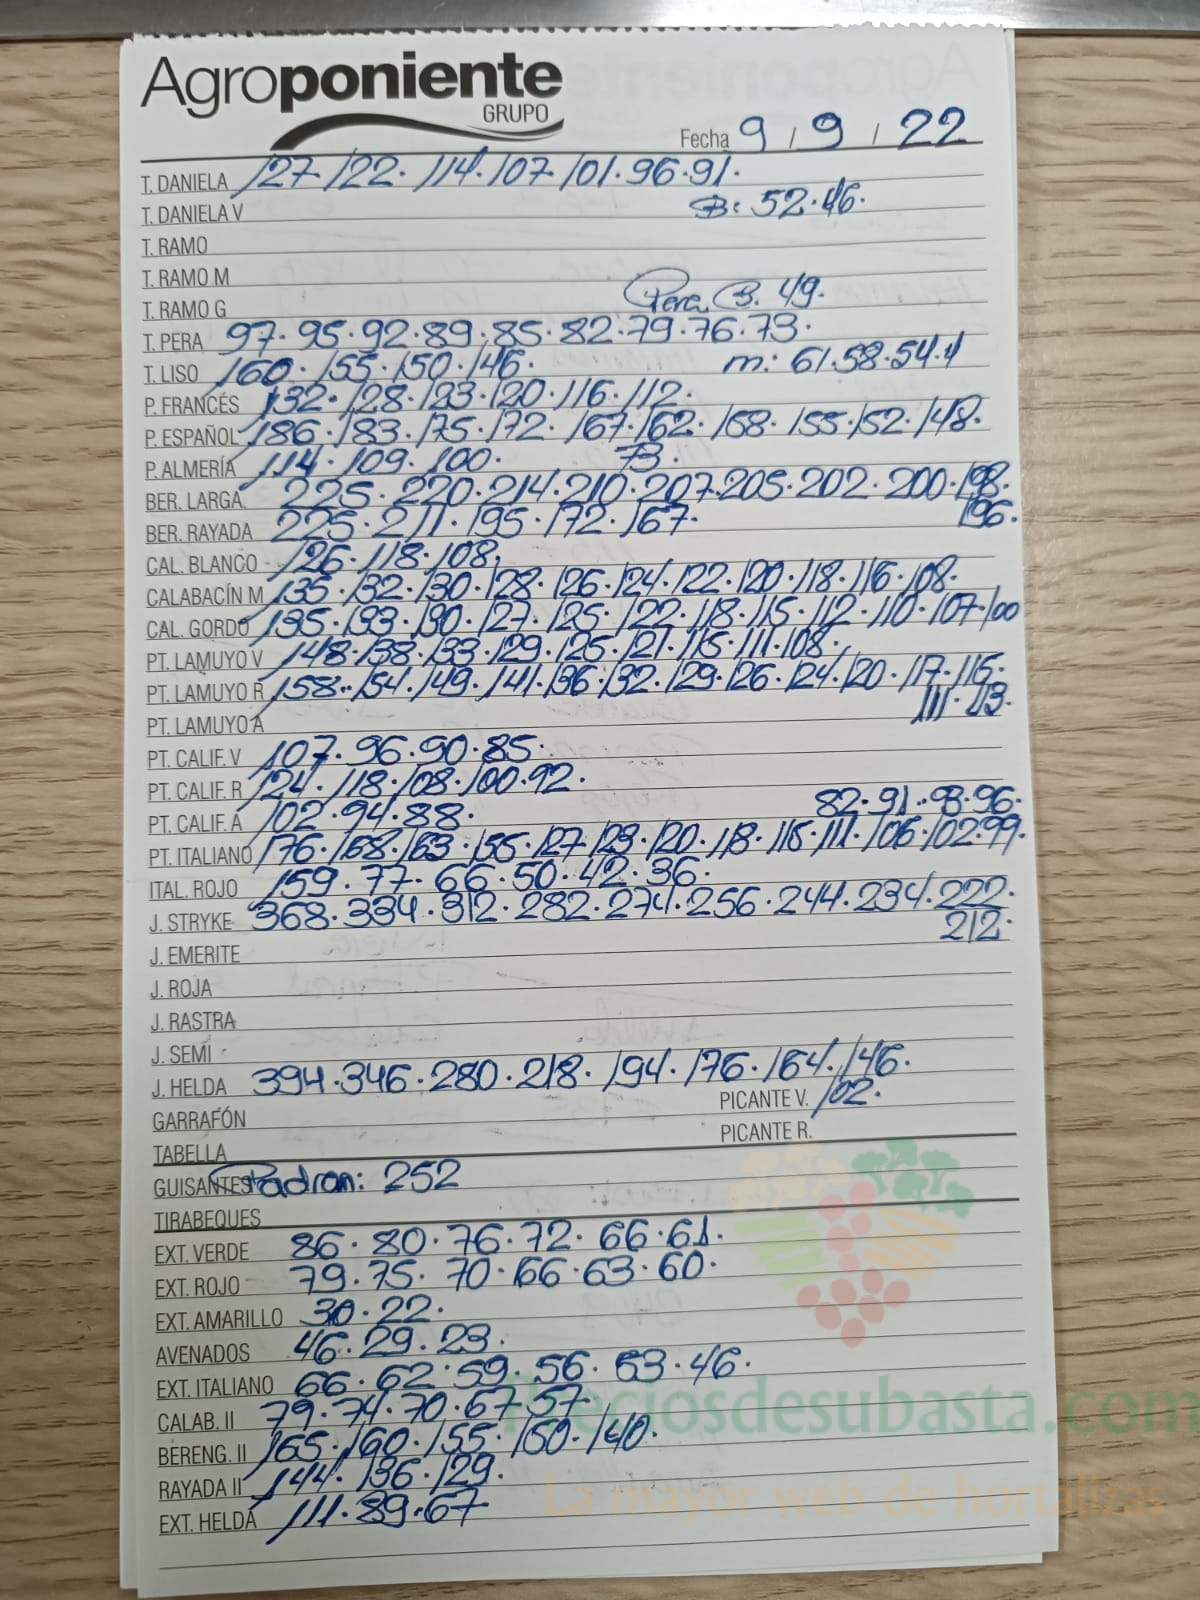 Agroponiente
GRUPO
Fecha 9 / 9 / 22
T. DANELA 127. 122. 114. 107 101. 96. 91.
T. DANIELA V B: 52. 46.
T. RAMO
T. RAMO M
T. RAMO G Pera B. 49.
T. PERA 97. 95. 92. 89. 85. 82. 79. 76. 73.
T. LISO 160. 155. 150. 146. m: 61. 58. 54.
P. FRANCÉS 132. 128. 123. 120. 116. 112.
P. ESPAÑOL 186. 183. 175. 172. 167. 162. 158. 155. 152. 148.
P. ALMERÍA 114. 109. 100. 73.
BER. LARGA 225. 220. 214. 210. 207. 205. 202. 200. 198.
196.
BER. RAYADA 225. 211. 195. 172. 167.
CAL. BLANCO 126. 118. 108.
CALABACÍN M 135. 132. 130. 128. 126. 124. 122. 120. 118. 116. 108.
CAL. GORDO 135. 133. 130. 127. 125. 122. 118. 115. 112. 110. 107. 100
PT. LAMUYO V 148. 138. 133. 129. 125. 121. 115. 111. 108.
PT. LAMUYO R 158. 154. 149. 141. 136. 132. 129. 126. 124. 120. 117. 115.
PT. LAMUYO A 111.
PT. CALIF. V 107. 96. 90. 85.
PT. CALIF. R 124. 118. 108. 100. 92.
PT. CALIF. A 102. 94. 88. 82. 91. 93. 96.
PT. ITALIANO 176. 168. 163. 155. 127. 123. 120. 118. 115. 111. 106. 102. 99.
ITAL. ROJO 159. 77. 66. 50. 42. 36.
J. STRYKE 368. 334. 312. 282. 274. 256. 244. 234. 222.
212.
J. EMERITE
J. ROJA
J. RASTRA
J. SEMI
J. HELDA 394. 346. 280. 218. 194. 176. 164. 146.
GARRAFÓN PICANTE V. 102.
TABELLA PICANTE R.
GUISANTES Padron: 252
TIRABEQUES
EXT. VERDE 86. 80. 76. 72. 66. 61.
EXT. ROJO 79. 75. 70. 66. 63. 60.
EXT. AMARILLO 30. 22.
AVENADOS 46. 29. 23.
EXT. ITALIANO 66. 62. 59. 56. 53. 46.
CALAB. II 79. 74. 70. 67. 57.
Preciosdesubasta.com
BERENG. II 165. 160. 155. 150. 140.
RAYADA II 144. 136. 129.
La mayor web de hortalizas
EXT. HELDA 111. 89. 67